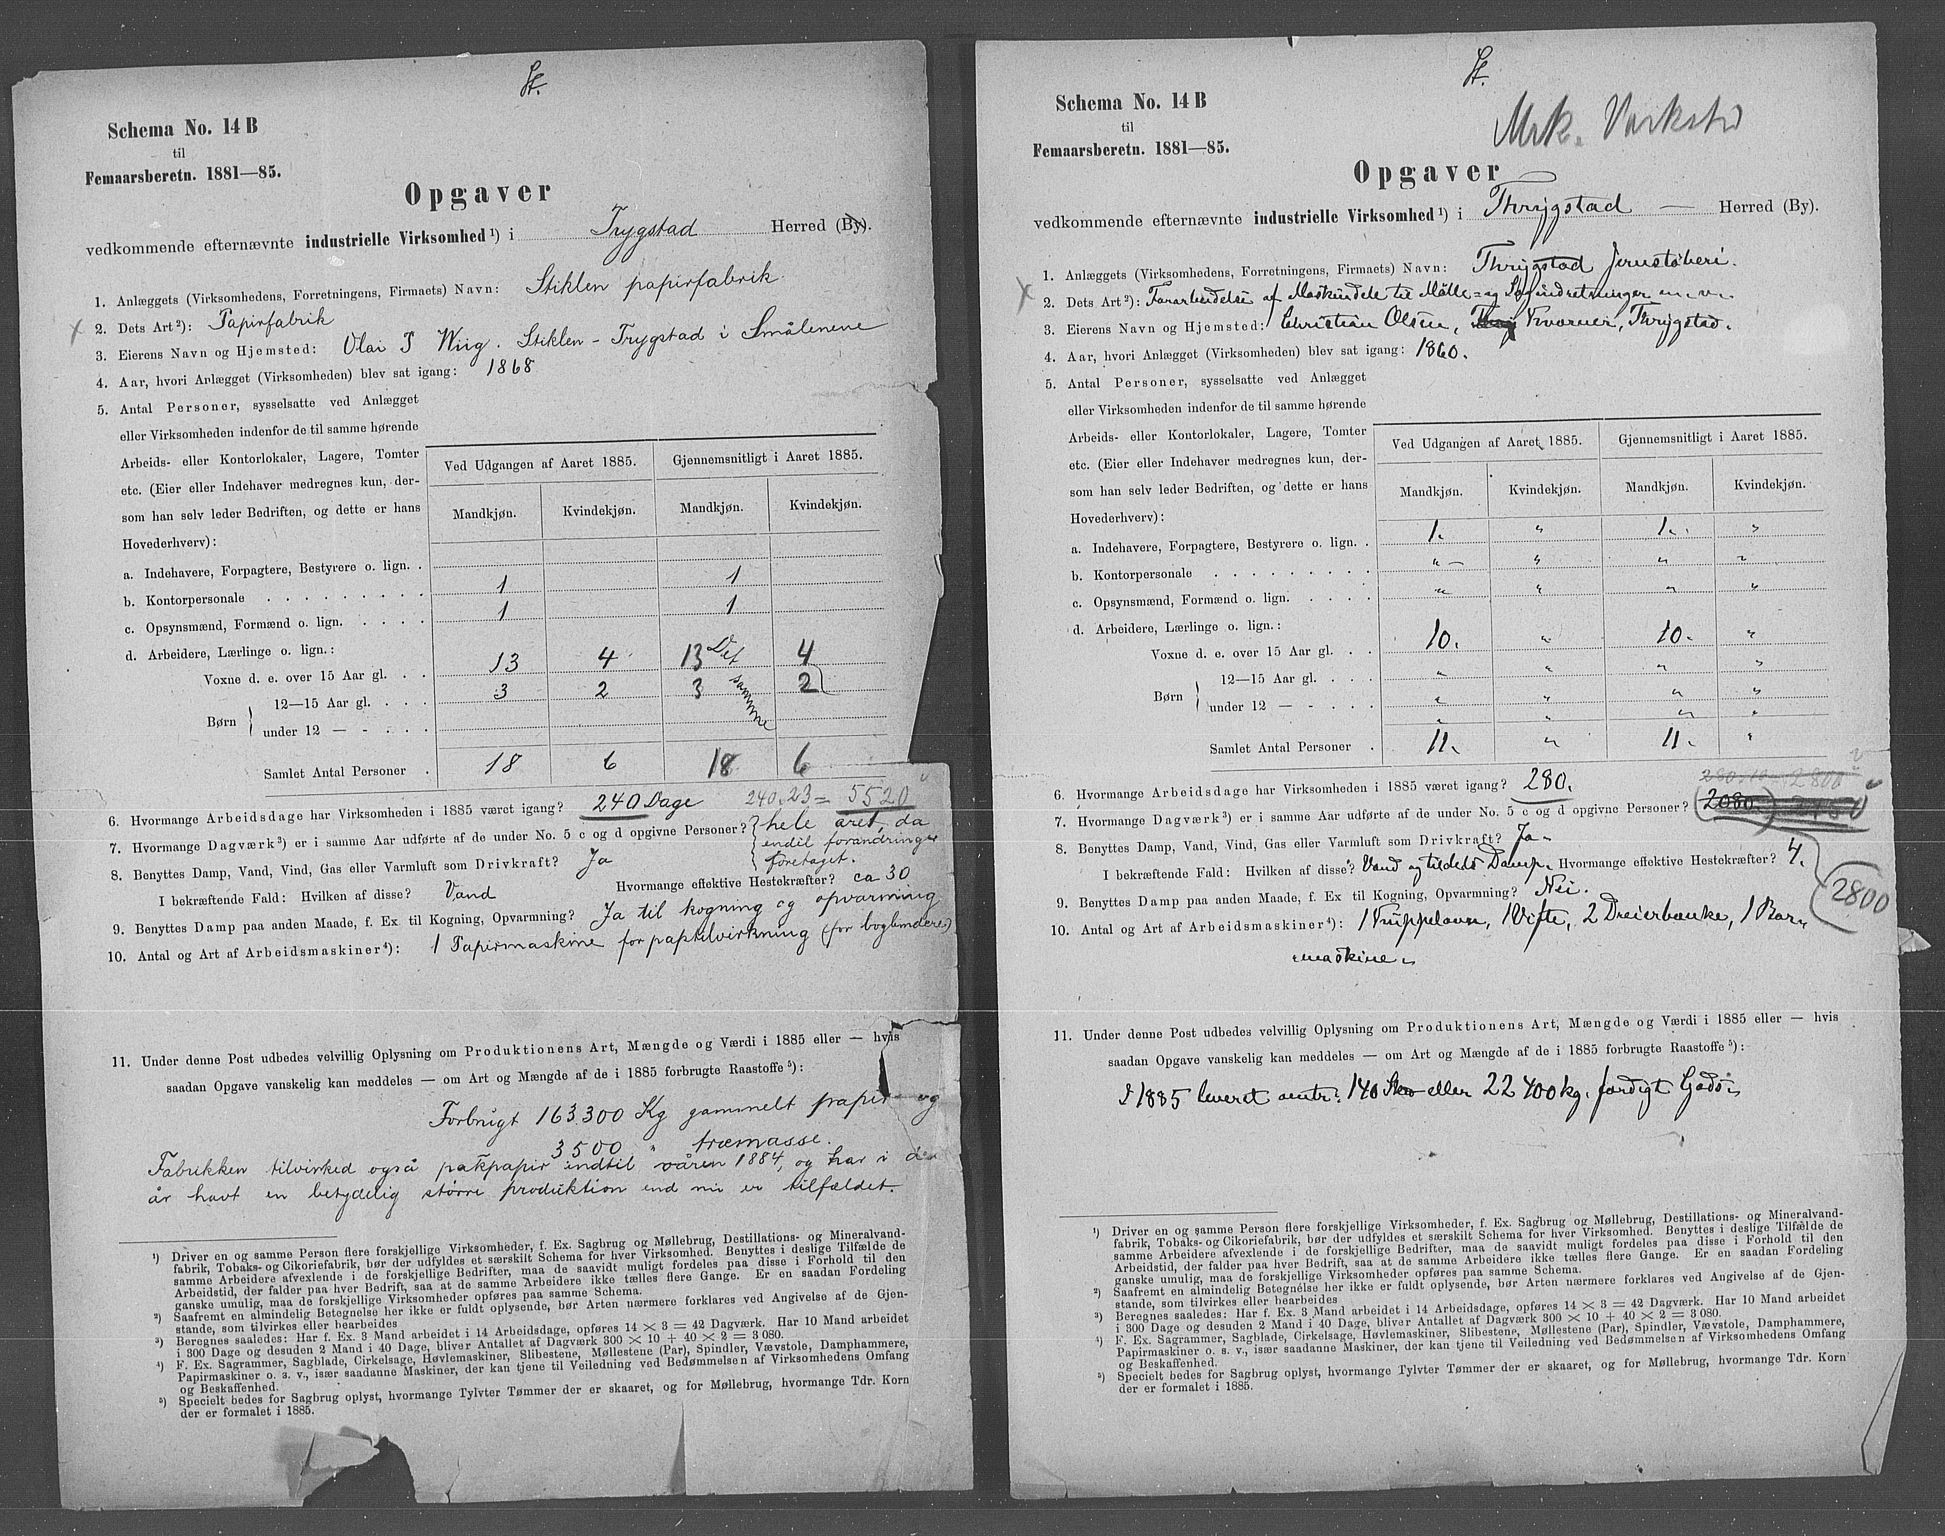 St.
Schema No. 14 B
til
Femaarsberetn. 1881—85.
Opgaver
vedkommende efternævnte industrielle Virksomhed ¹) i Trygstad Herred (By).
1. Anlæggets (Virksomhedens, Forretningens, Firmaets) Navn: Stiklen papirfabrik
2. Dets Art ²): Papirfabrik
3. Eierens Navn og Hjemsted: Olai P Wiig. Stiklen - Trygstad i Smålenene
4. Aar, hvori Anlægget (Virksomheden) blev sat igang: 1868
5. Antal Personer, sysselsatte ved Anlægget
eller Virksomheden indenfor de til samme hørende
Arbeids- eller Kontorlokaler, Lagere, Tomter
etc. (Eier eller Indehaver medregnes kun, der-
som han selv leder Bedriften, og dette er hans
Hovederhverv):
Ved Udgangen af Aaret 1885. Gjennemsnitligt i Aaret 1885.
Mandkjøn. Kvindekjøn. Mandkjøn. Kvindekjøn.
a. Indehavere, Forpagtere, Bestyrere o. lign. . 1 1
b. Kontorpersonale . . . . . . . . . 1 1
c. Opsynsmænd, Formænd o. lign. . . . .
d. Arbeidere, Lærlinge o. lign.:
Voxne d. e. over 15 Aar gl. . . 13 4 13 Det 4
Børn { 12—15 Aar gl. . . . 3 2 3 samme 2
under 12 — - . . .
Samlet Antal Personer . 18 6 18 6
6. Hvormange Arbeidsdage har Virksomheden i 1885 været igang? 240 Dage 240.23 = 5520
7. Hvormange Dagværk ³) er i samme Aar udførte af de under No. 5 c og d opgivne Personer? hele året, da
endil forandringer
foretaget.
8. Benyttes Damp, Vand, Vind, Gas eller Varmluft som Drivkraft? Ja
I bekræftende Fald: Hvilken af disse? Vand Hvormange effektive Hestekræfter? ca 30
9. Benyttes Damp paa anden Maade, f. Ex. til Kogning, Opvarmning? Ja til kogning og opvarming
10. Antal og Art af Arbeidsmaskiner ⁴): 1 Papirmaskine for paptilvirkning (for bogbindere)
11. Under denne Post udbedes velvillig Oplysning om Produktionens Art, Mængde og Værdi i 1885 eller — hvis
saadan Opgave vanskelig kan meddeles — om Art og Mængde af de i 1885 forbrugte Raastoffe ⁵):
Forbrugt 163.300 Kg gammelt papir og
3500 " træmasse.
Fabrikken tilvirked også pakpapir indtil våren 1884, og har i de
år havt en betydelig større produktion end nu er tilfældet.
¹) Driver en og samme Person flere forskjellige Virksomheder, f. Ex. Sagbrug og Møllebrug, Destillations- og Mineralvand-
fabrik, Tobaks- og Cikoriefabrik, bør der udfyldes et særskilt Schema for hver Virksomhed. Benyttes i deslige Tilfælde de
samme Arbeidere afvexlende i de forskjellige Bedrifter, maa de saavidt muligt fordeles paa disse i Forhold til den
Arbeidstid, der falder paa hver Bedrift, saa at de samme Arbeidere ikke tælles flere Gange. Er en saadan Fordeling
ganske umulig, maa de forskjellige Virksomheder opføres paa samme Schema.
²) Saafremt en almindelig Betegnelse her ikke er fuldt oplysende, bør Arten nærmere forklares ved Angivelse af de Gjen-
stande, som tilvirkes eller bearbeides
³) Beregnes saaledes: Har f. Ex. 3 Mand arbeidet i 14 Arbeidsdage, opføres 14 × 3 = 42 Dagværk. Har 10 Mand arbeidet
i 300 Dage og desuden 2 Mand i 40 Dage, bliver Antallet af Dagværk 300 × 10 + 40 × 2 = 3 080.
⁴) F. Ex. Sagrammer, Sagblade, Cirkelsage, Høvlemaskiner, Slibestene, Møllestene (Par), Spindler, Vævstole, Damphammere,
Papirmaskiner o. s. v., især saadanne Maskiner, der kan tjene til Veiledning ved Bedømmelsen af Virksomhedens Omfang
og Beskaffenhed.
⁵) Specielt bedes for Sagbrug oplyst, hvormange Tylvter Tømmer der er skaaret, og for Møllebrug, hvormange Tdr. Korn
der er formalet i 1885.
St.
Schema No. 14 B
til
Femaarsberetn. 1881—85.
Mek. Værksted
Opgaver
vedkommende efternævnte industrielle Virksomhed ¹) i Thrygstad — Herred (By).
1. Anlæggets (Virksomhedens, Forretningens, Firmaets) Navn: Thrygstad Jernstøberi.
2. Dets Art ²): Forarbeidelse af Maskindele til Mølle= og
3. Eierens Navn og Hjemsted: Christian Olsen, Kværner, Thrygstad.
4. Aar, hvori Anlægget (Virksomheden) blev sat igang: 1860.
5. Antal Personer, sysselsatte ved Anlægget
eller Virksomheden indenfor de til samme hørende
Arbeids- eller Kontorlokaler, Lagere, Tomter
etc. (Eier eller Indehaver medregnes kun, der-
som han selv leder Bedriften, og dette er hans
Hovederhverv):
Ved Udgangen af Aaret 1885. Gjennemsnitligt i Aaret 1885.
Mandkjøn. Kvindekjøn. Mandkjøn. Kvindekjøn.
a. Indehavere, Forpagtere, Bestyrere o. lign. . 1. " 1. "
b. Kontorpersonale . . . . . . . . . " " " "
c. Opsynsmænd, Formænd o. lign. . . . . " " " "
d. Arbeidere, Lærlinge o. lign.:
Voxne d. e. over 15 Aar gl. . . 10. " 10. "
Børn { 12—15 Aar gl. . . . " " " "
under 12 — - . . . " " " "
Samlet Antal Personer . 11. " 11. "
6. Hvormange Arbeidsdage har Virksomheden i 1885 været igang? 280. 280.10 = 2800
7. Hvormange Dagværk ³) er i samme Aar udførte af de under No. 5 c og d opgivne Personer? 2080.
8. Benyttes Damp, Vand, Vind, Gas eller Varmluft som Drivkraft? Ja
I bekræftende Fald: Hvilken af disse? Vand og tildels Damp. Hvormange effektive Hestekræfter? 4.
2800
9. Benyttes Damp paa anden Maade, f. Ex til Kogning, Opvarmning? Nei.
10. Antal og Art af Arbeidsmaskiner ⁴): 1 Kuppelovn, 1 Vifte, 2 Dreierbænke, 1 Bor=
maskine.
11. Under denne Post udbedes velvillig Oplysning om Produktionens Art, Mængde og Værdi i 1885 eller — hvis
saadan Opgave vanskelig kan meddeles — om Art og Mængde af de i 1885 forbrugte Raastoffe ⁵):
I 1885 leveret omtr. 140 Skp eller 22400 kg. færdigt Gods.
¹) Driver en og samme Person flere forskjellige Virksomheder, f. Ex. Sagbrug og Møllebrug, Destillations- og Mineralvand-
fabrik, Tobaks- og Cikoriefabrik, bør der udfyldes et særskilt Schema for hver Virksomhed. Benyttes i deslige Tilfælde de
samme Arbeidere afvexlende i de forskjellige Bedrifter, maa de saavidt muligt fordeles paa disse i Forhold til den
Arbeidstid, der falder paa hver Bedrift, saa at de samme Arbeidere ikke tælles flere Gange. Er en saadan Fordeling
ganske umulig, maa de forskjellige Virksomheder opføres paa samme Schema.
²) Saafremt en almindelig Betegnelse her ikke er fuldt oplysende, bør Arten nærmere forklares ved Angivelse af de Gjen-
stande, som tilvirkes eller bearbeides
³) Beregnes saaledes: Har f. Ex. 3 Mand arbeidet i 14 Arbeidsdage, opføres 14 × 3 = 42 Dagværk. Har 10 Mand arbeidet
i 300 Dage og desuden 2 Mand i 40 Dage, bliver Antallet af Dagværk 300 × 10 + 40 × 2 = 3 080.
⁴) F. Ex. Sagrammer, Sagblade, Cirkelsage, Høvlemaskiner, Slibestene, Møllestene (Par), Spindler, Vævstole, Damphammere,
Papirmaskiner o. s. v., især saadanne Maskiner, der kan tjene til Veiledning ved Bedømmelsen af Virksomhedens Omfang
og Beskaffenhed.
⁵) Specielt bedes for Sagbrug oplyst, hvormange Tylvter Tømmer der er skaaret, og for Møllebrug, hvormange Tdr. Korn
der er formalet i 1885.